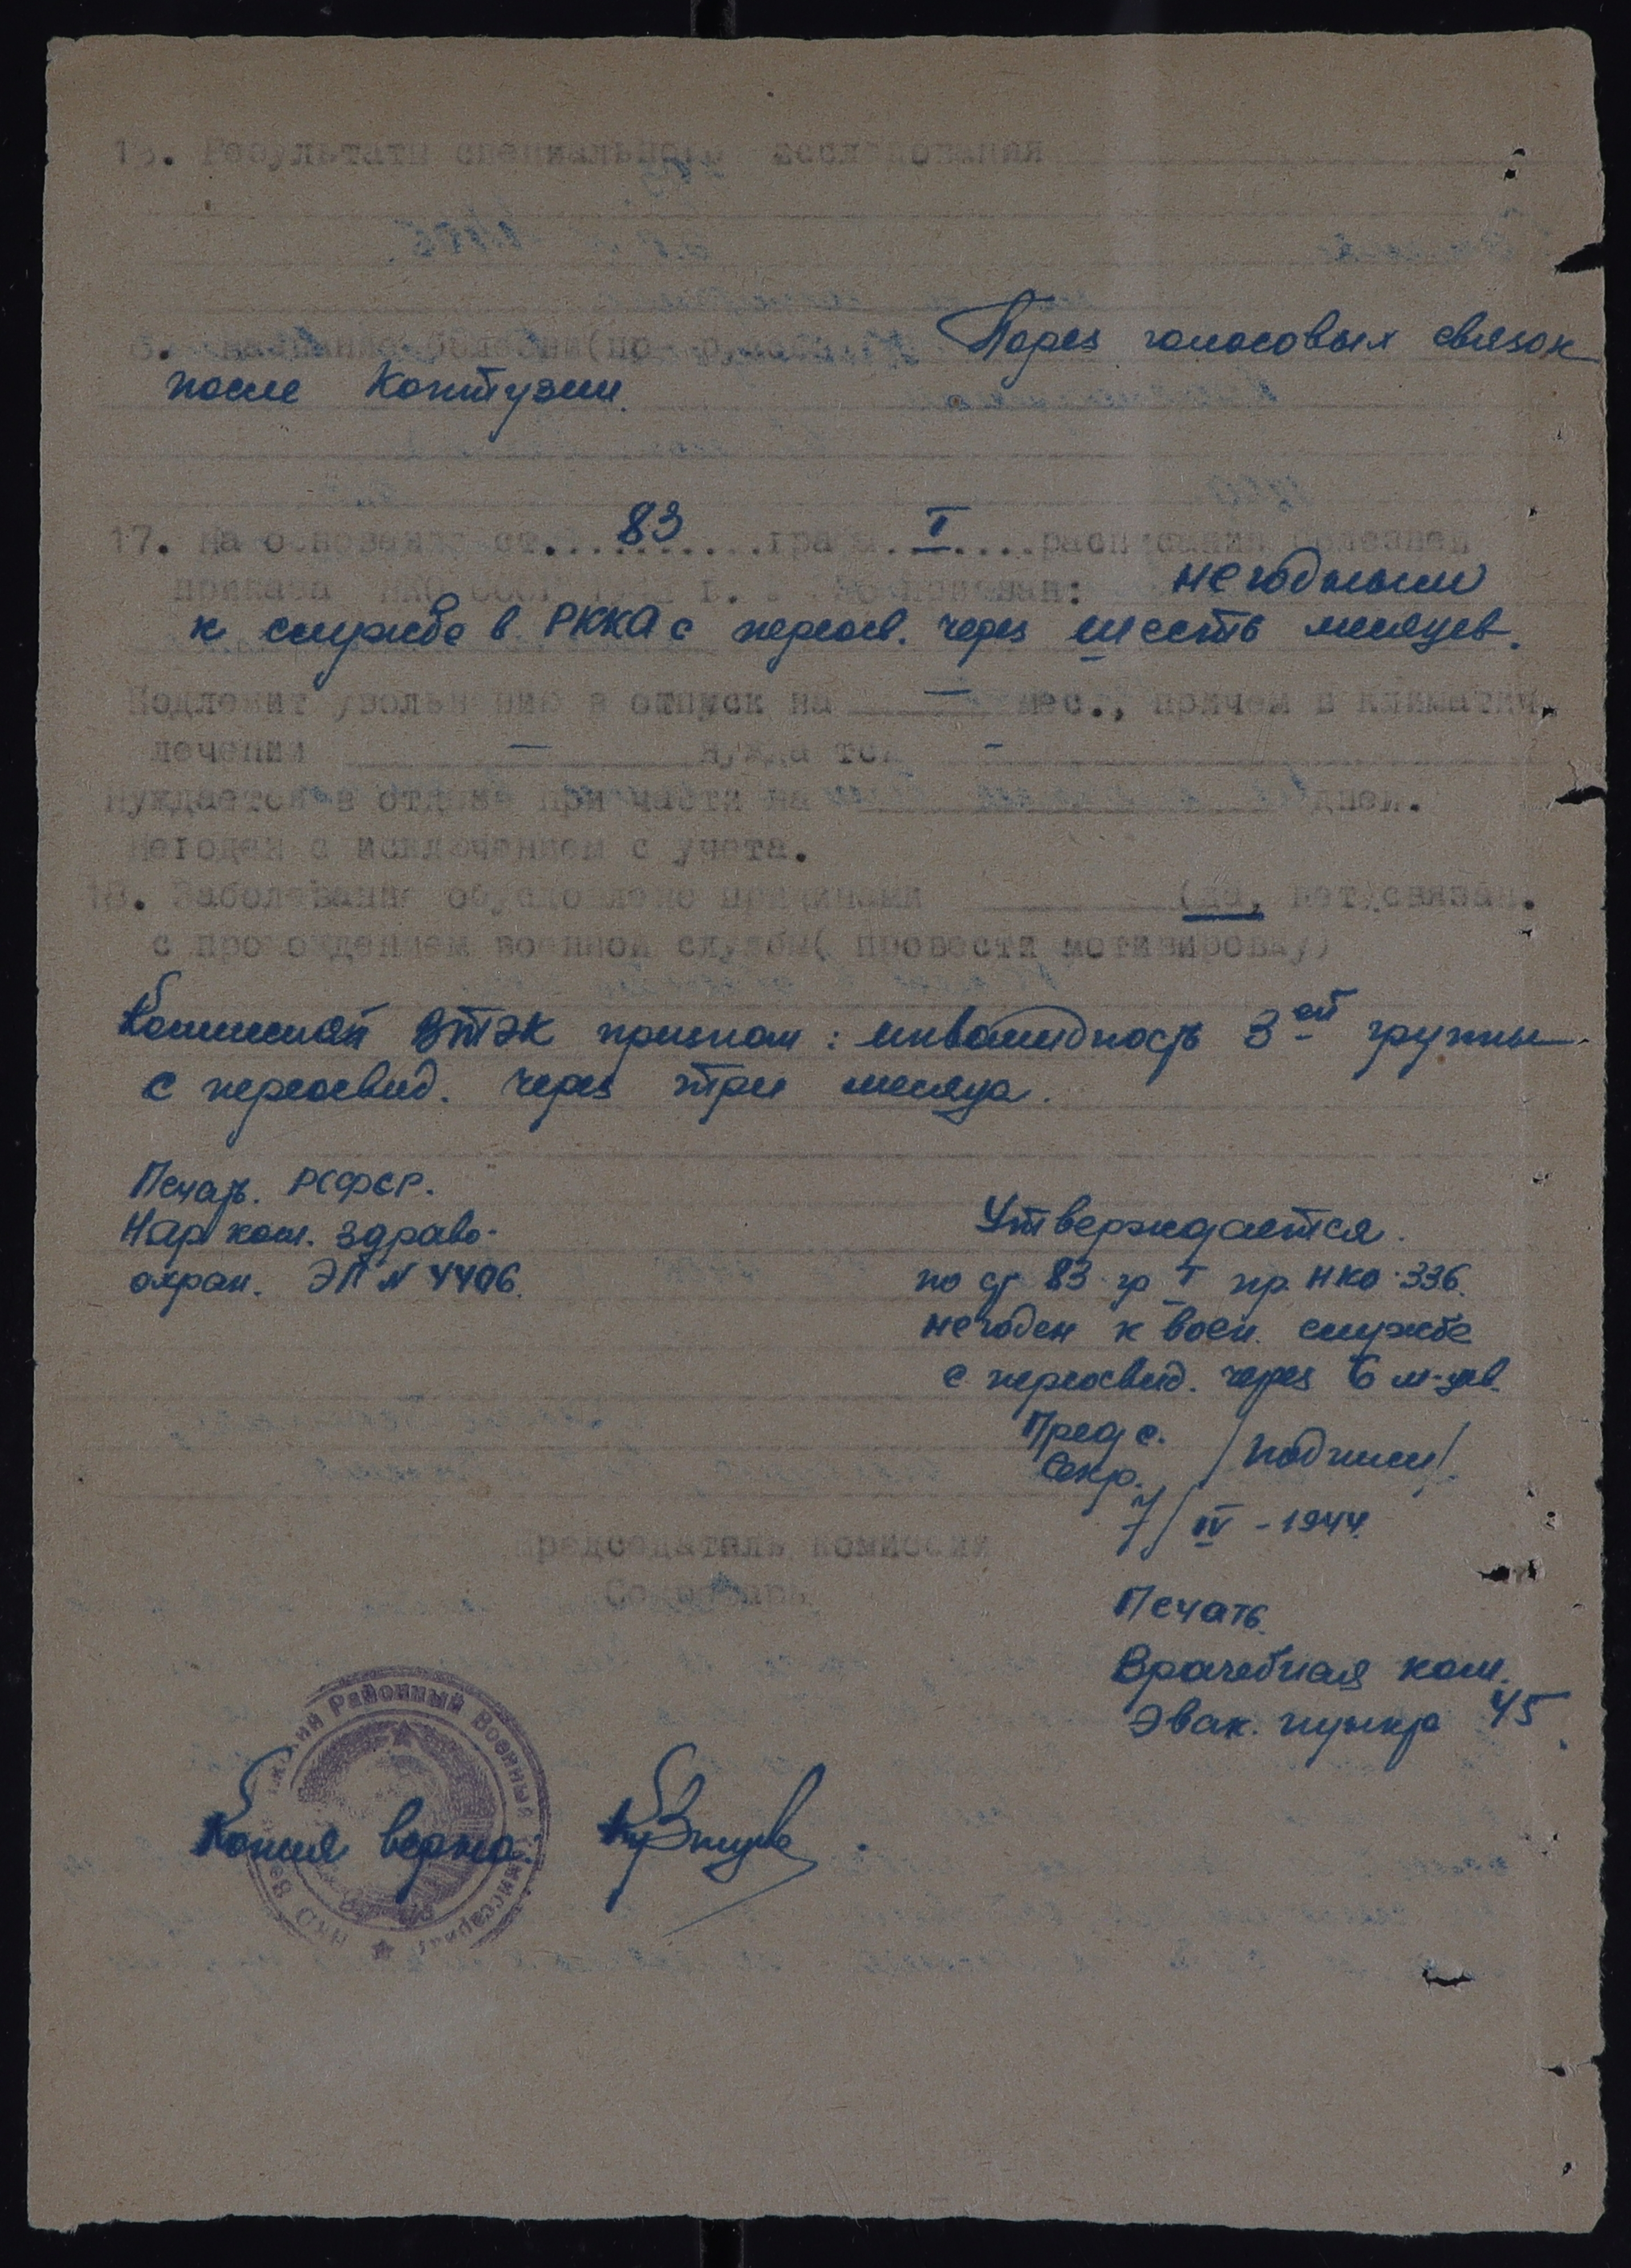 15. Результати специального исследования
6. название болезни (по Парез голосовых связок
после контузии.
17. На основании ст. 83 графы I расписания болезней
приказа НКО СССР 194 г. негодным
к службе в РККА с переосв. через шесть месяцев.
Подлежит увольнению в отпуск на — мес., причем в климатич.
лечении — нуждается -
Нуждается в отдыхе при части на дней.
Негоден с исключением с учета.
18. Заболевание обусловлено причинами (да, нет) связан.
с прохождением военной службы( провести мотивировку)
Комиссией ВТЭК признан: инвалидность 3ей группы
с переосвид. через три месяца.
Печать. РСФСР.
Нар. ком. здраво-
охран. ЭГ N 4406.
Утверждается.
по ст 83 гр I пр. НКО 336.
негоден к воен. службе
с переосвид. через 6 м-цев.
Предс.
Секр. /подписи/
7/IV - 1944.
Председатель комиссии
Секретарь
Печать.
Врачебная ком.
Эвак. пункт 45
Районный Военный Комиссариат
НКО
Копия верна: